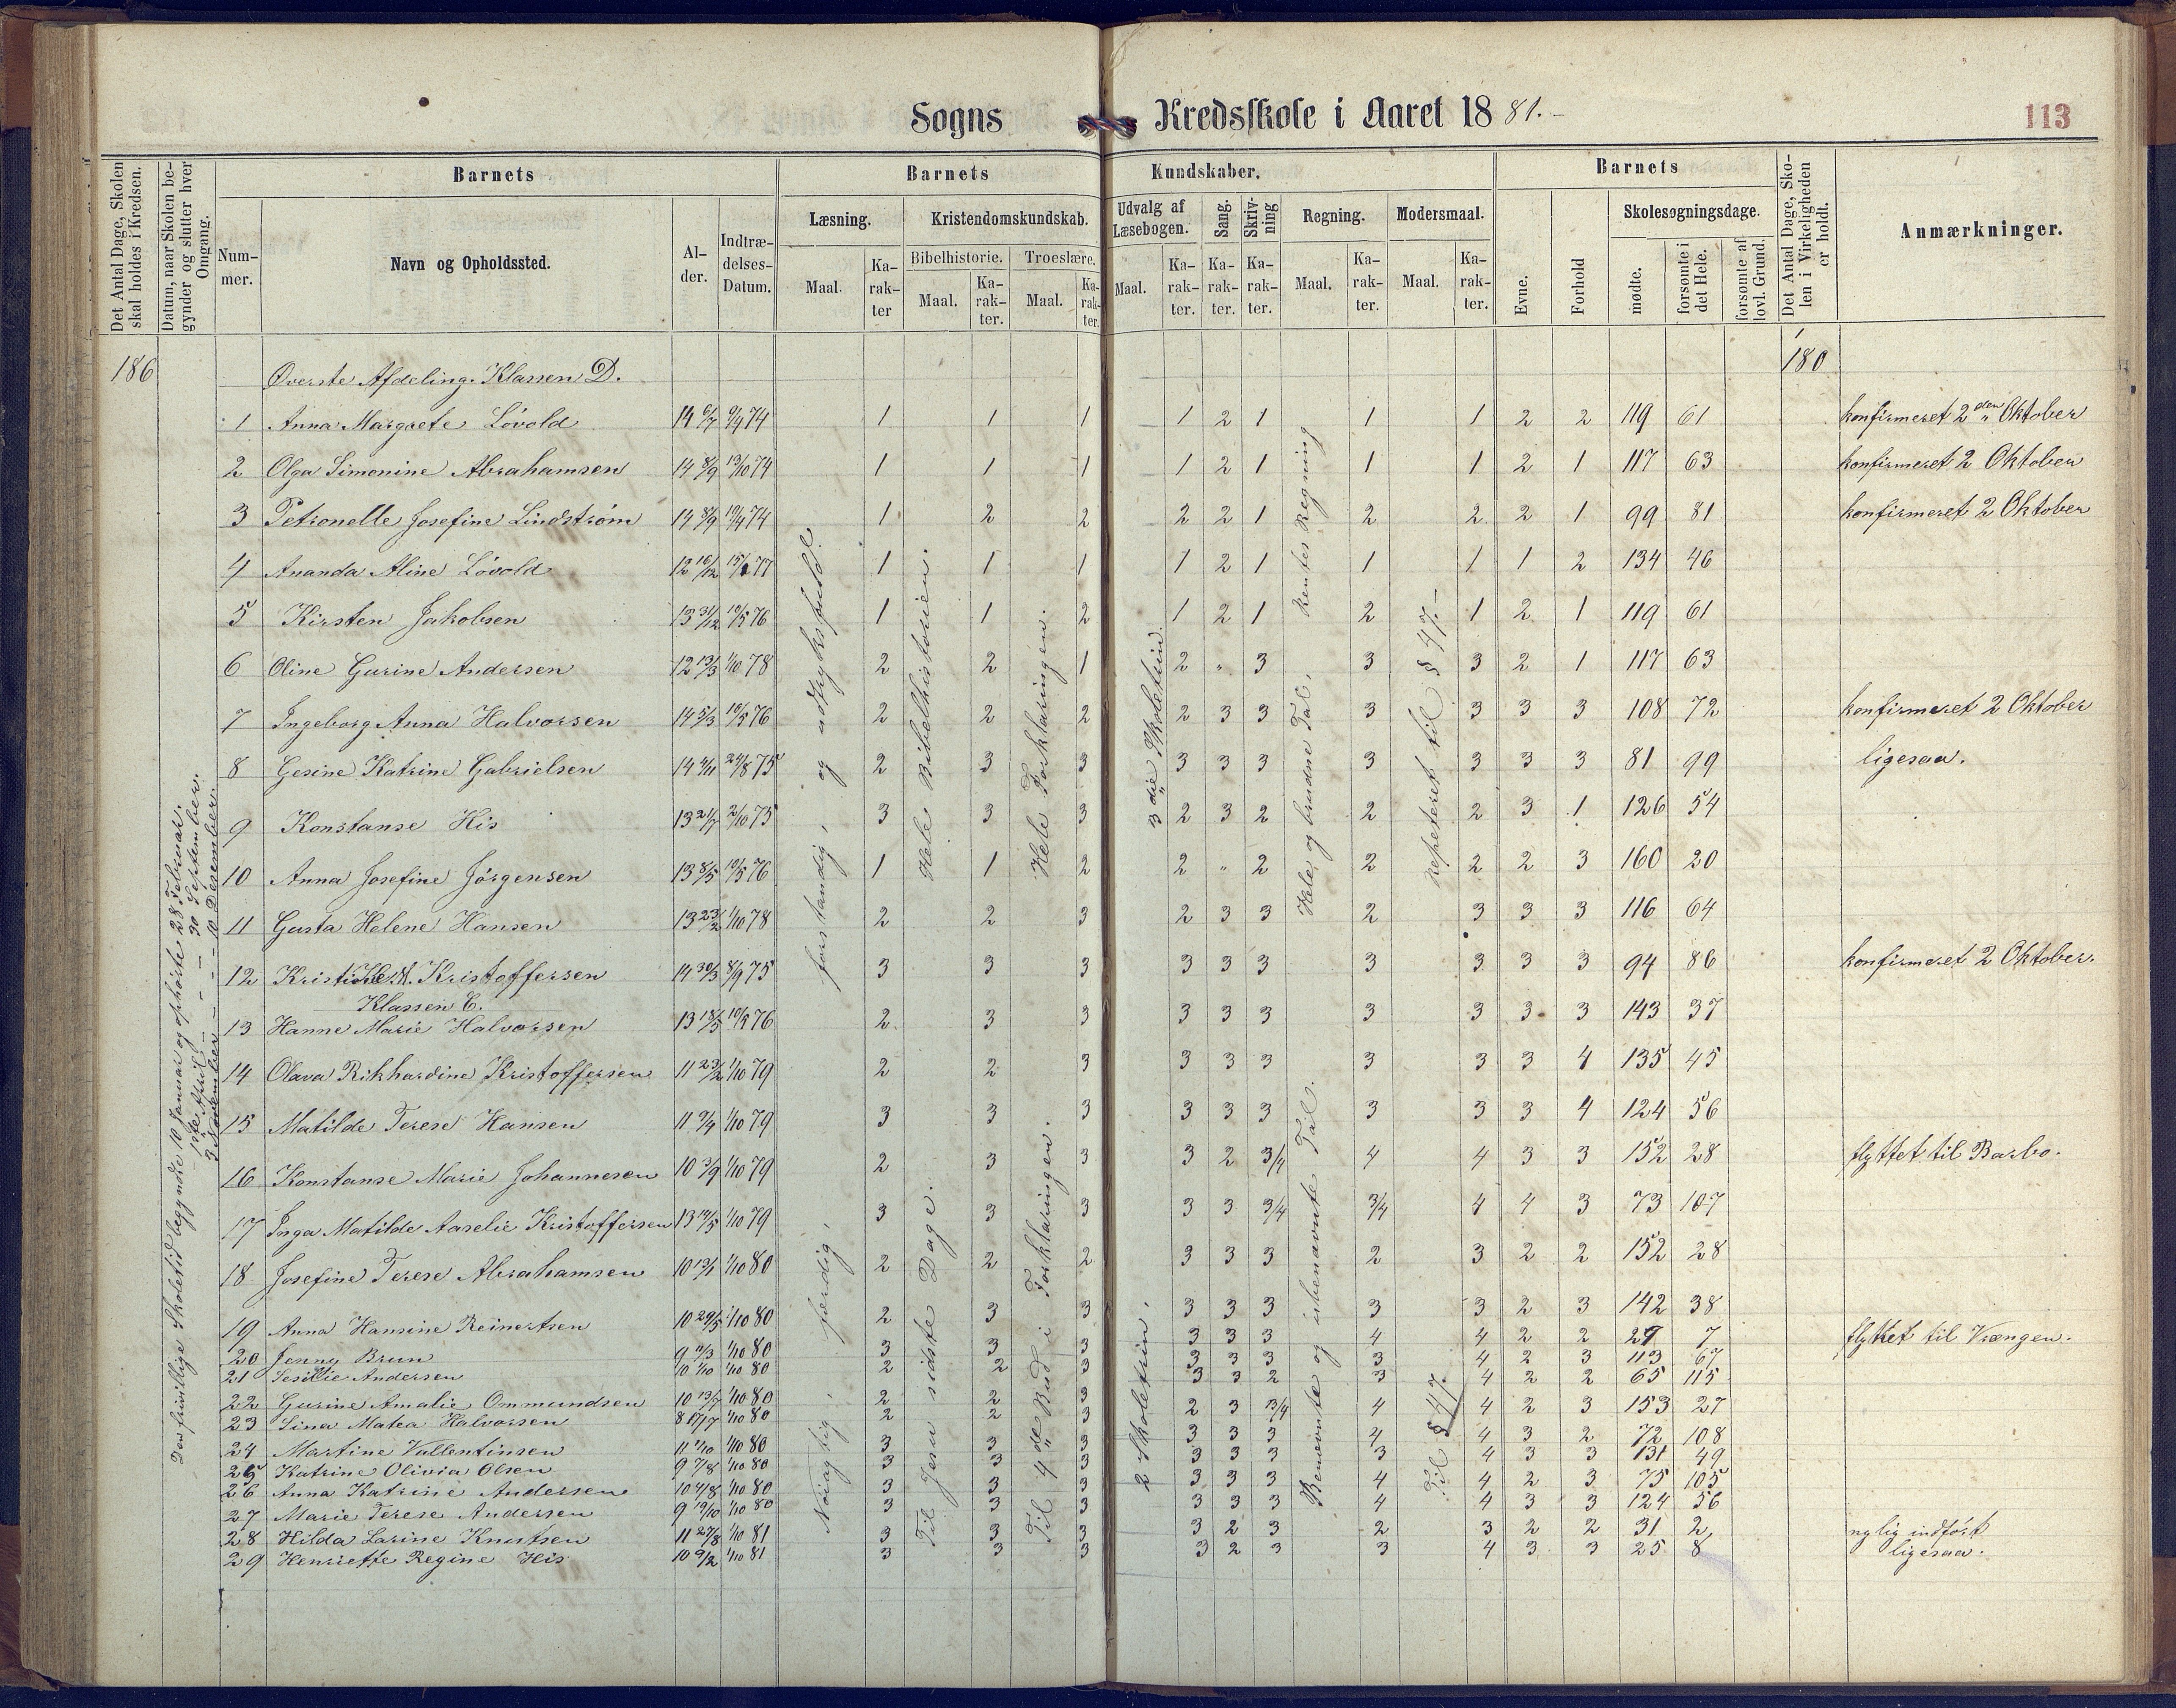 Sogns Kredsskole i Aaret 1881.-
113
Det Antal Dage, Skolen skal holdes i Kredsen.
Datum, naar Skolen begynder og slutter hver Omgang.
Barnets
Nummer.
Navn og Opholdssted.
Alder.
Indtrædelses-Datum.
Barnets Kundskaber.
Læsning.
Maal.
Karakter
Kristendomskundskab.
Bibelhistorie.
Maal.
Karakter.
Troeslære.
Maal.
Karakter.
Udvalg af Læsebogen.
Maal.
Karakter.
Sang.
Karakter.
Skrivning
Karakter.
Regning.
Maal.
Karakter.
Modersmaal.
Maal.
Karakter.
Barnets
Evne.
Forhold
Skolesøgningsdage.
mødte.
forsømte i det Hele.
forsømte af lovl. Grund.
Det Antal Dage, Skolen i Virkeligheden er holdt.
Anmærkninger.
186 Øverste Afdeling. Klassen D. 180
1 Anna Margrete Lövold 14 6/7 9/4 74 1 1 1 1 2 1 1 1 2 2 119 61 konfirmeret 2den Oktober
2 Olga Simonine Abrahamsen 14 8/9 13/10 74 1 1 1 1 2 1 1 1 2 1 117 63 konfirmeret 2 Oktober
3 Petronelle Josefine Lindström 14 8/9 10/4 74 1 2 2 2 2 1 2 2 2 1 99 81 konfirmeret 2 Oktober
4 Ananda Aline Lövold 12 16/12 77 1 1 1 1 2 1 1 1 1 2 134 46
5 Kirsten Jakobsen 13 31/12 10/5 76 1 1 2 1 2 1 2 1 2 1 119 61
6 Oline Gurine Andersen 12 13/3 1/10 78 2 2 1 2 " 3 3 3 2 1 117 63
7 Ingeborg Anna Halvorsen 14 5/3 10/5 76 2 2 2 2 3 3 3 3 3 3 108 72 konfirmeret 2 Oktober
8 Gesine Katrine Gabrielsen 14 4/11 24/8 75 2 3 3 3 3 3 3 3 3 3 81 99 ligesaa.
9 Konstanse His 13 21/7 2/10 75 3 3 3 2 3 2 2 2 3 1 126 54
10 Anna Josefine Jörgensen 13 8/5 10/5 76 1 1 2 2 " 2 2 2 2 3 160 20
11 Gusta Helene Hansen 13 23/2 1/10 78 2 2 3 2 3 3 2 3 3 3 116 64
12 Kristoffersen 14 30/3 8/9 75 3 3 3 3 3 3 3 3 3 3 94 86 konfirmeret 2 Oktober.
Klassen C.
13 Hanne Marie Halvorsen 13 18/5 76 2 3 3 3 3 3 3 3 3 3 143 37
14 Olava Rikhardine Kristoffersen 11 23/2 1/10 79 2 2 3 3 3 3 3 3 3 4 135 45
15 Matilde Terese Hansen 11 9/4 1/10 79 3 3 3 3 3 3 3 3 3 4 124 56
16 Konstanse Marie Johannesen 10 3/9 1/10 79 2 3 3 3 2 3/4 4 4 3 3 152 28 flyttet til Barbo.
17 Inga Matilde Aarelie Kristoffersen 13 14/5 1/10 79 3 3 3 3 3 3/4 3/4 4 4 3 73 107
18 Josefine Terese Abrahamsen 10 1/10 80 2 2 2 3 3 3 2 3 2 2 152 28
19 Anna Hansine Reinertsen 10 29/5 1/10 80 2 3 3 3 3 3 3 3 2 3 142 38
20 Jenny Brun 9 11/3 1/10 80 3 3 3 3 3 3 4 4 2 2 27 7 flyttet til Vrængen.
21 Andersen 10 1/10 1/10 80 2 2 3 3 3 3 3 4 2 3 113 67
22 Gurine Amalie Ommundsen 10 13/7 1/10 80 2 2 3 3 3 2 3 4 2 2 65 115
23 Sina Matea Halvorsen 8 17/7 1/10 80 2 2 3 2 3 3/4 4 4 2 3 153 27
24 Martine Vallentinsen 11 1/10 80 3 3 3 3 3 3 4 4 3 2 72 108
25 Katrine Olivia Olsen 9 7/8 1/10 80 3 3 3 3 3 3 3 4 3 3 131 49
26 Anna Katrine Andersen 10 4/8 1/10 80 3 3 3 3 3 3 4 4 2 3 75 105
27 Marie Terese Andersen 9 19/10 1/10 80 3 3 3 3 3 3 4 4 3 3 124 56
28 Hilda Larine Knutsen 11 27/8 1/10 81 3 3 3 3 2 3 2 3 2 2 31 2 nylig indført
29 Henriette Regine His 10 9/2 1/10 81 3 3 3 3 2 3 3 4 3 3 25 8 ligesaa.
Den frivillige Skoletid begyndte 10 Januar og ophørte 28 Februar.
- 1ste April - - - 30 September.
3 November - - - 10 Desember.
forstandig, og udtryksfuld.
Hele Bibelhistorien.
Hele Forklaringen.
3die Skoletrin.
Hele og brudne Tal, Rentes Regning
repeteret til § 47.-
Nöiagtig, færdig,
Til Jesu sidste Dage.
Til 4de Bud i Forklaringen.
2 Skoletrin.
Benævnte og ubenævnte Tal.
Til § 47.